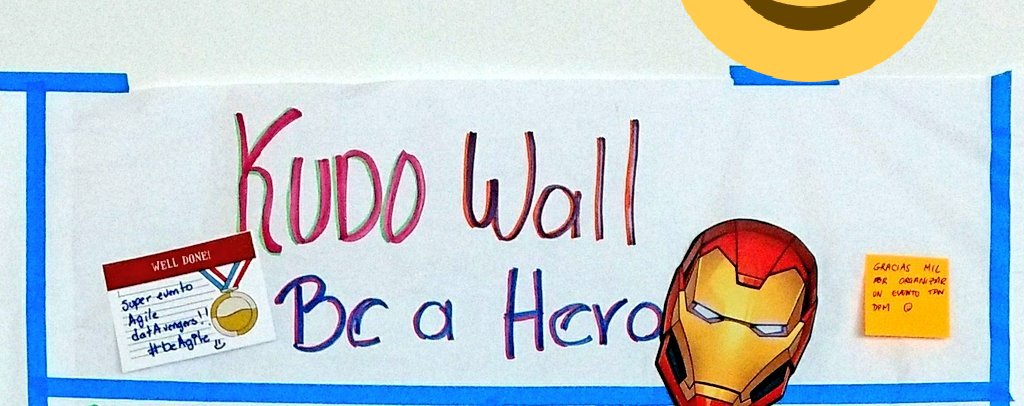 Kudo Wall
Be a Hero
WELL DONE!
Super evento
Agile
datAvengers!!
#beAgile
GRACIAS MIL
POR ORGANIZAR
UN EVENTO TAN
DPM